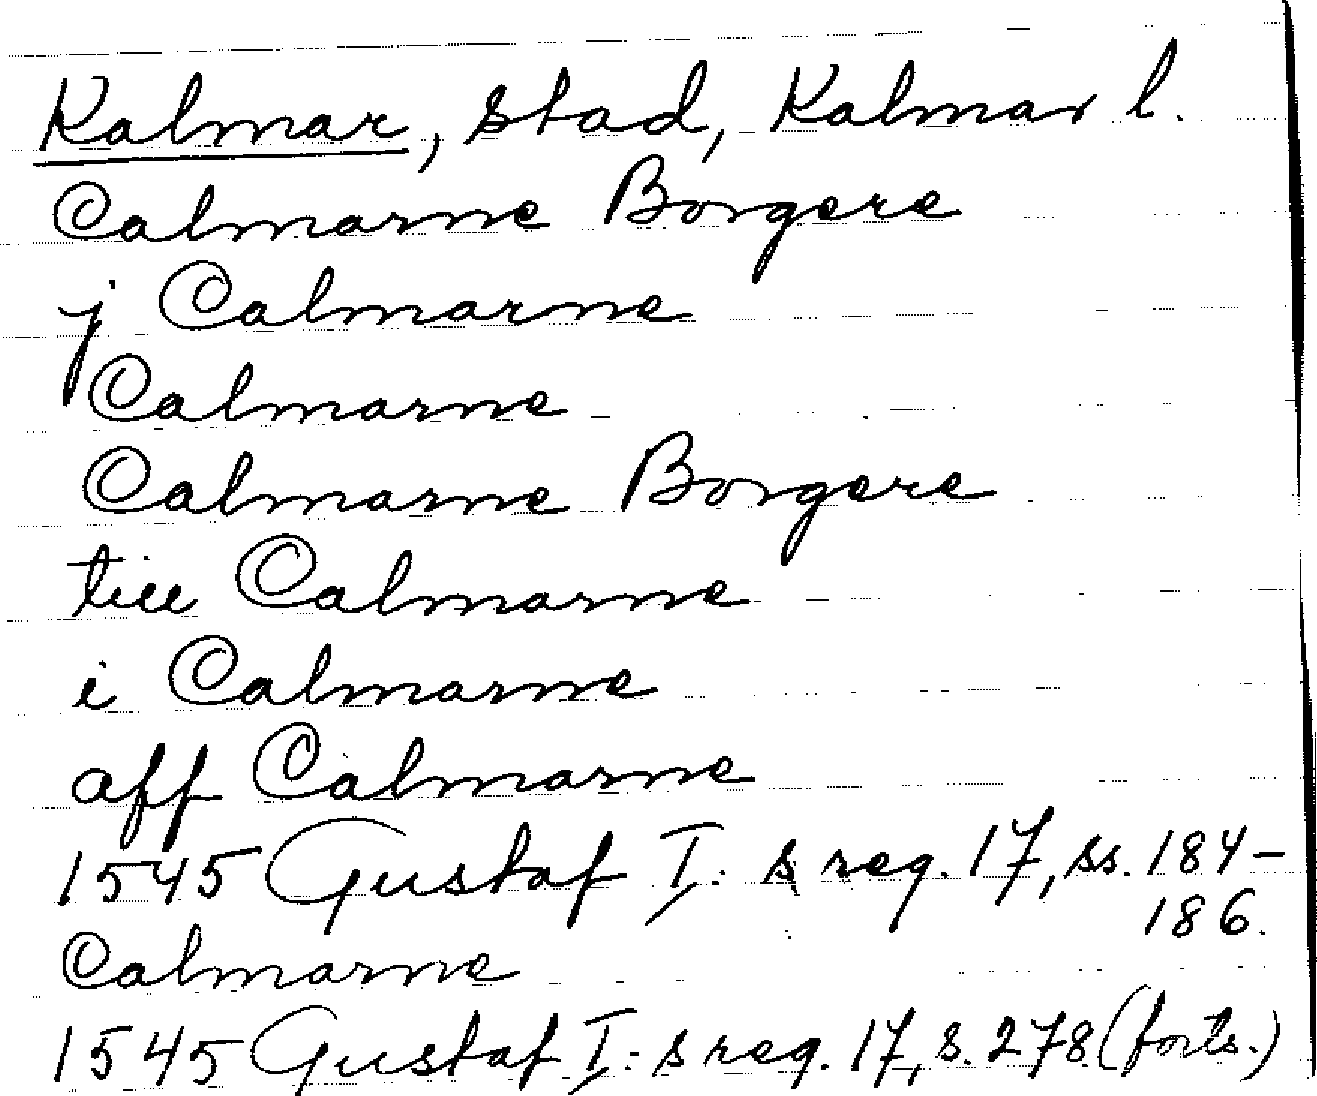 Kalmar, stad, Kalmar l.
Calmarne Borgere
j Calmarne
Calmarne
Calmarne Borgere
till Calmarne
i Calmarne
aff Calmarne
1545 Gustaf I:s reg. 17, ss. 184-
186.
Calmarne
1545 Gustaf I:s reg. 17, s. 278 (forts.)